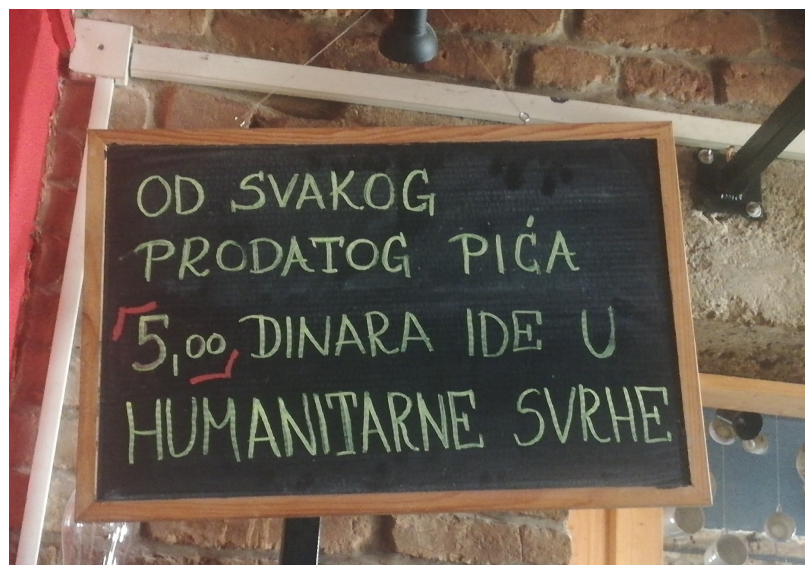 OD SVAKOG
PRODATOG PIĆA
5,00 DINARA IDE U
HUMANITARNE SVRHE